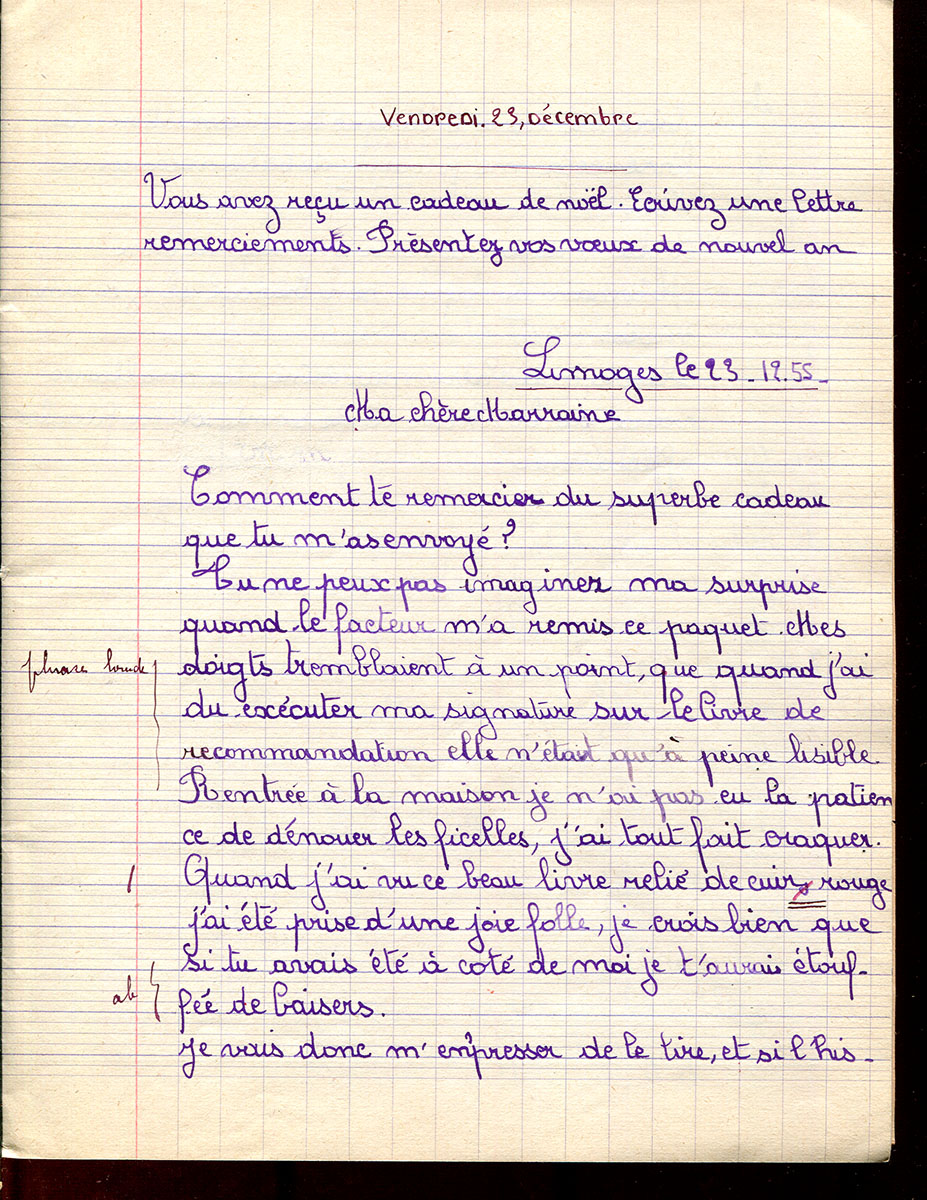 Vendredi. 23, Décembre
Vous avez reçu un cadeau de noël. Ecrivez une lettre
remerciements. Présentez vos vœux de nouvel an
Limoges le 23 - 12.55 -
Ma chère Marraine
Comment te remercier du superbe cadeau
que tu m'as envoyé ?
Tu ne peux pas imaginer ma surprise
quand le facteur m'a remis ce paquet. Mes
phrase lourde
doigts tremblaient à un point, que quand j'ai
du exécuter ma signature sur le livre de
recommandation elle n'était qu'à peine lisible.
Rentrée à la maison je n'ai pas eu la patien
ce de dénouer les ficelles, j'ai tout fait craquer.
Quand j'ai vu ce beau livre relié de cuirs rouge
j'ai été prise d'une joie folle, je crois bien que
si tu avais été à coté de moi je t'aurais étouf-
fée de baisers.
je vais donc m'empresser de le lire, et si l'his-